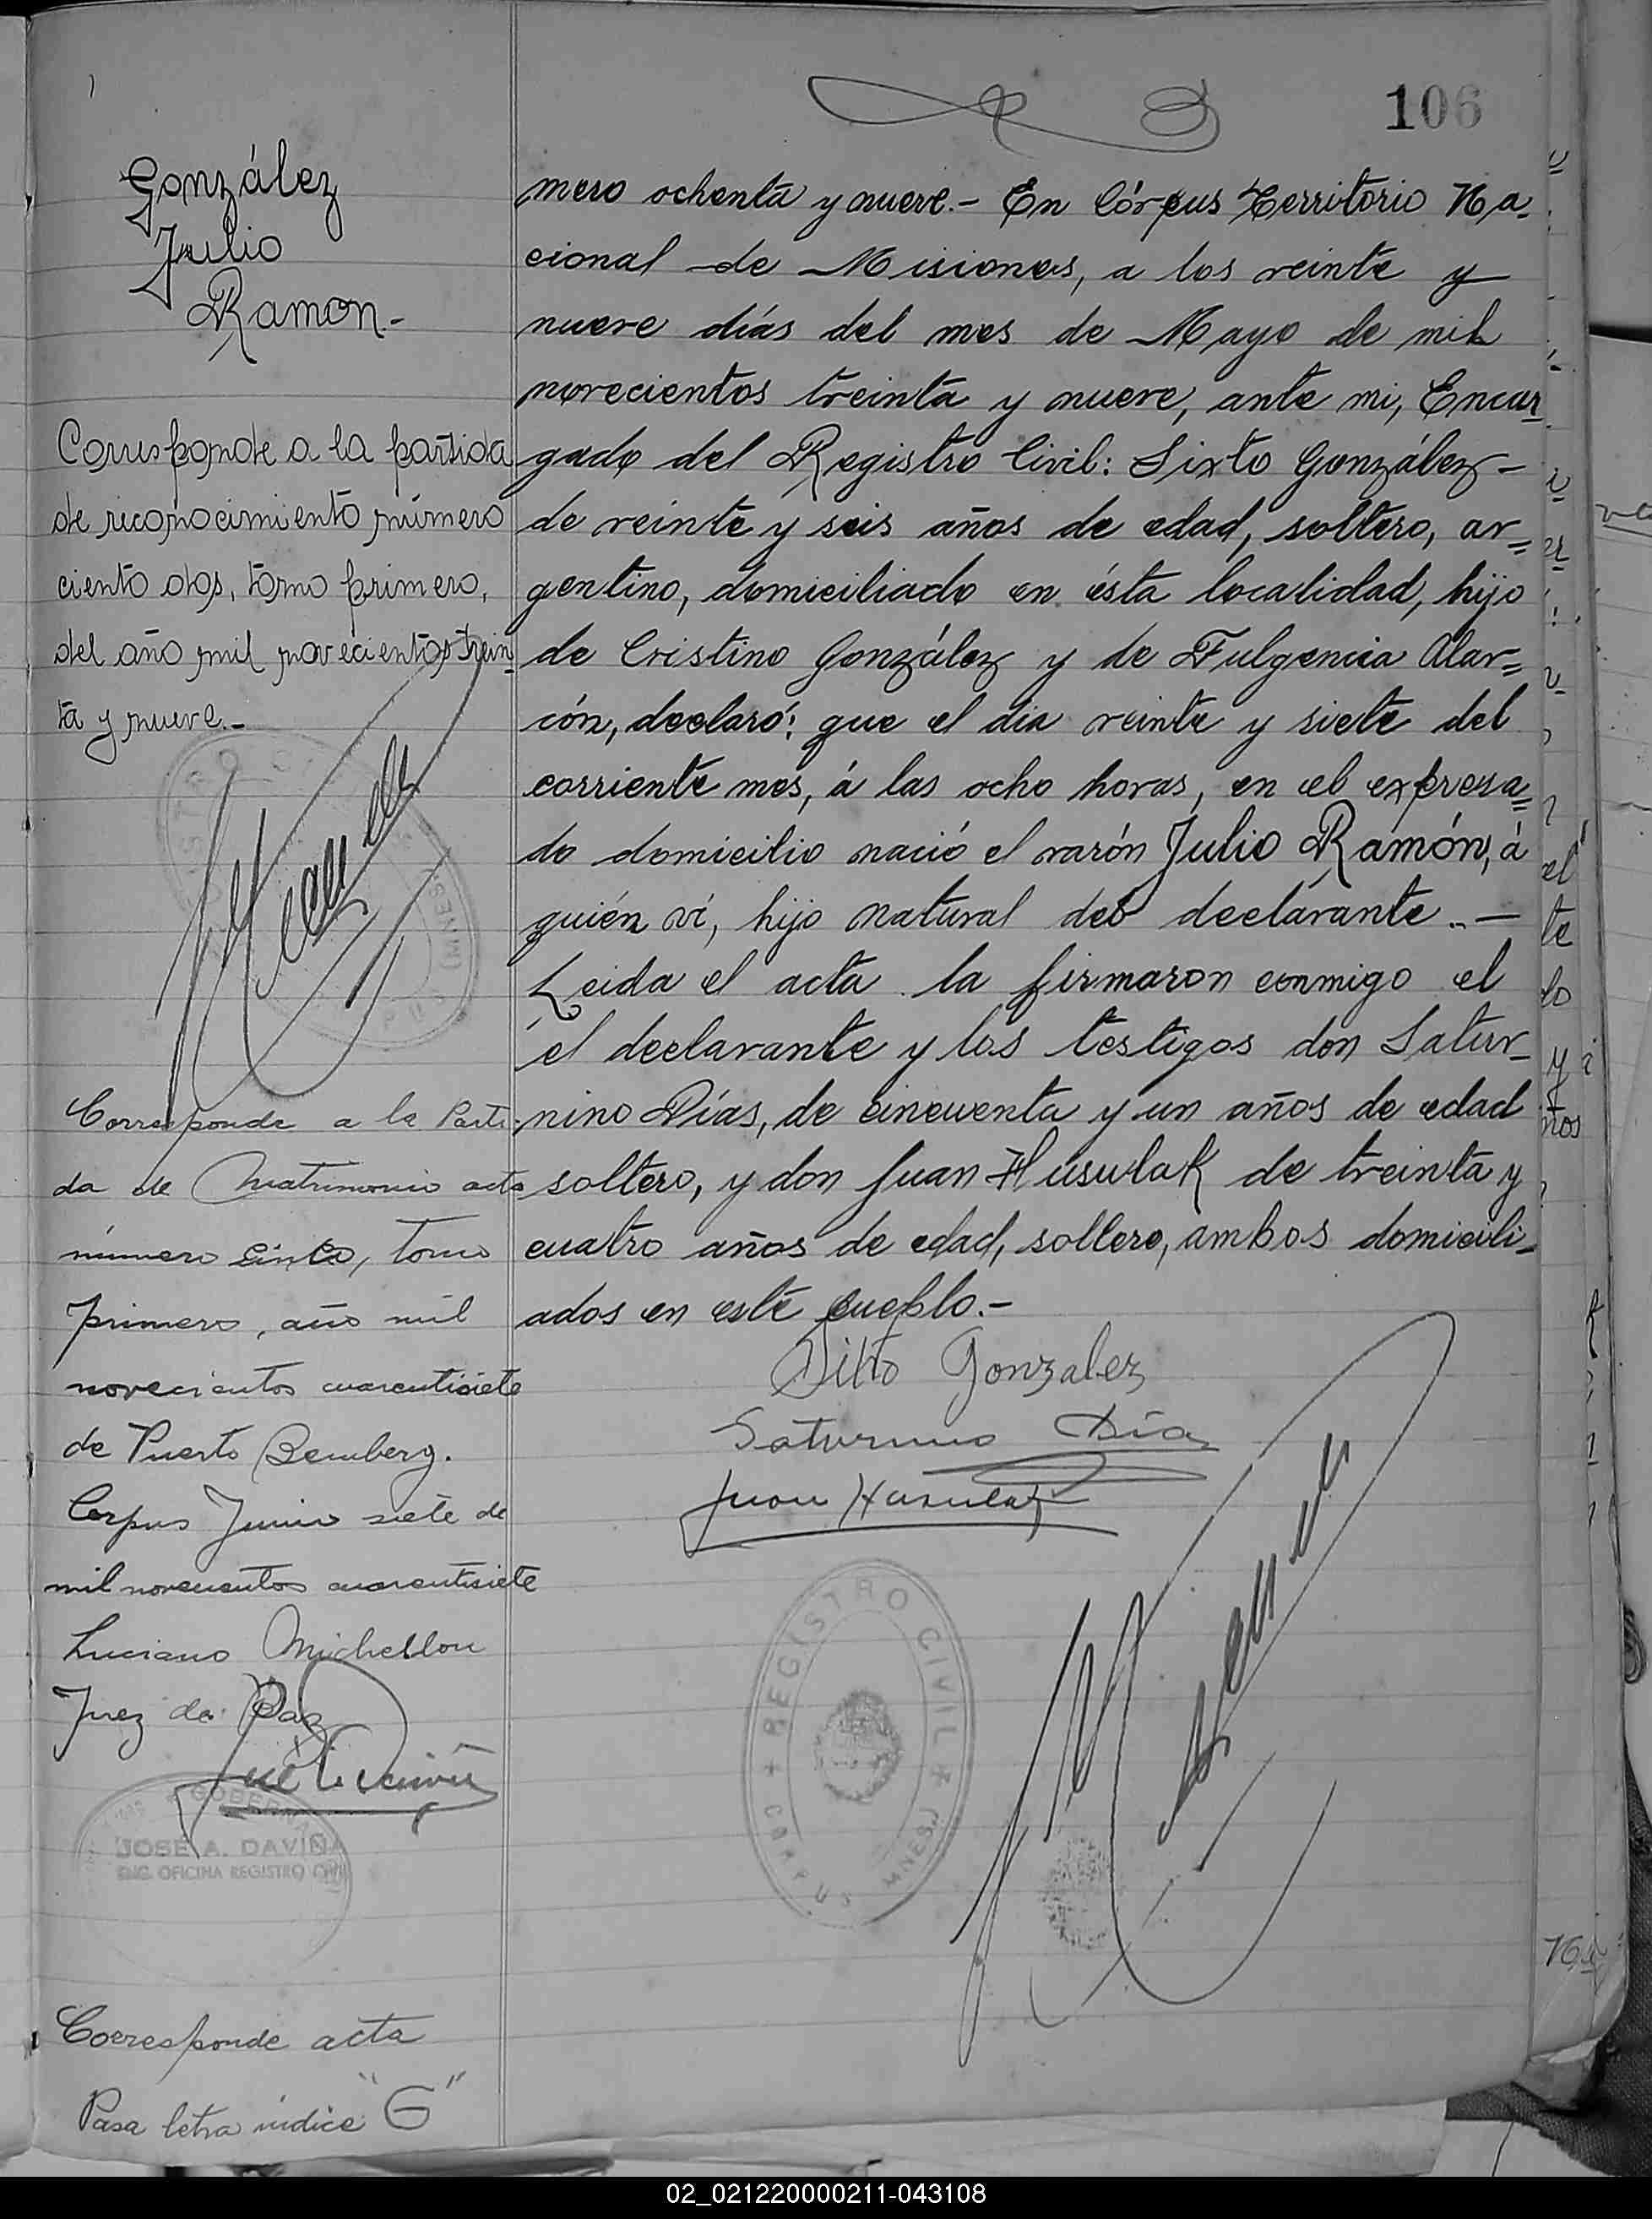 106
González
Julio
Ramon.-
Corresponde a la partida
de reconocimiento número
ciento dos, tomo primero,
del año mil novecientos trein
ta y nueve.-
Corresponde a la Parti-
da de Matrimonio acta
número cinco, tomo
primero, año mil
novecientos cuarentisiete
de Puerto Bemberg.
Corpus Junio siete de
mil novecientos cuarentisiete
Luciano Michellon
Juez de Paz
GOBERNA
JOSÉ A. DAVIÑA
ENC. OFICINA REGISTRO CIVIL
Corresponde acta
Pasa letra indice "G"
mero ochenta y nueve.- En Córpus Territorio Na-
cional de Misiones, a los veinte y
nueve días del mes de Mayo de mil
novecientos treinta y nueve, ante mi, Encar
gado del Registro Civil: Sixto González-
de veinte y seis años de edad, soltero, ar=
gentino, domiciliado en ésta localidad, hijo
de Cristino González y de Fulgencia Alar=
cón, declaró: que el dia veinte y siete del
corriente mes, á las ocho horas, en el expresa=
do domicilio nació el varón Julio Ramón, á
quién ví, hijo natural del declárante..-
Leida el acta la firmaron conmigo el
el declarante y los testigos don Satur-
nino Días, de cincuenta y un años de edad
soltero, y don Juan Húsulak de treinta y
cuatro años de edad, soltero, ambos domicili-
ados en esté pueblo.-
Sixto Gonzalez
Saturnino Días
Juan Husulak
REGISTRO CIVIL
CORPUS MNES.
02_021220000211-043108